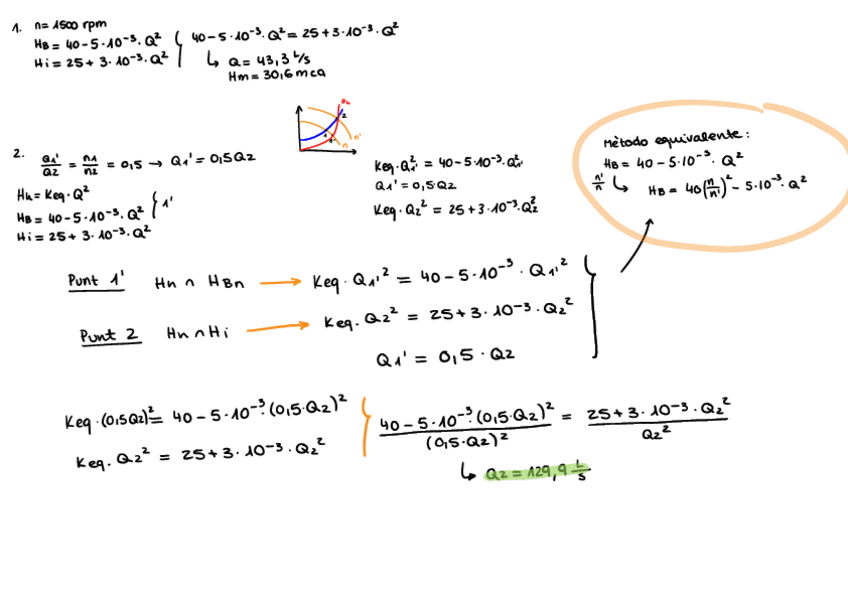 1. n= 1500 rpm
HB = 40-5·10⁻³·Q²
Hi = 25+ 3·10⁻³·Q²
40-5·10⁻³·Q² = 25+3·10⁻³·Q²
↳ Q= 43,3 L/s
Hm = 30,6 mca
2. Q1'/Q2 = n1/n2 = 0,5 → Q1' = 0,5Q2
Hn = Keq·Q²
HB = 40-5·10⁻³·Q² } 1'
Hi = 25+ 3·10⁻³·Q²
2
n'
Keq·Q1'² = 40-5·10⁻³·Q1'²
Q1' = 0,5Q2
Keq·Q2² = 25+3·10⁻³·Q2²
Mètodo equivalente:
HB = 40-5·10⁻³·Q²
n'/n ↳ HB = 40(n/n')² - 5·10⁻³·Q²
Punt 1' Hn ∩ HBn → Keq·Q1'² = 40-5·10⁻³·Q1'²
Punt 2 Hn ∩ Hi → Keq·Q2² = 25+3·10⁻³·Q2²
Q1' = 0,5·Q2
Keq·(0,5Q2)² = 40-5·10⁻³·(0,5·Q2)²
Keq·Q2² = 25+3·10⁻³·Q2²
40-5·10⁻³·(0,5·Q2)²/(0,5·Q2)² = 25+3·10⁻³·Q2²/Q2²
↳ Q2 = 129,9 L/s